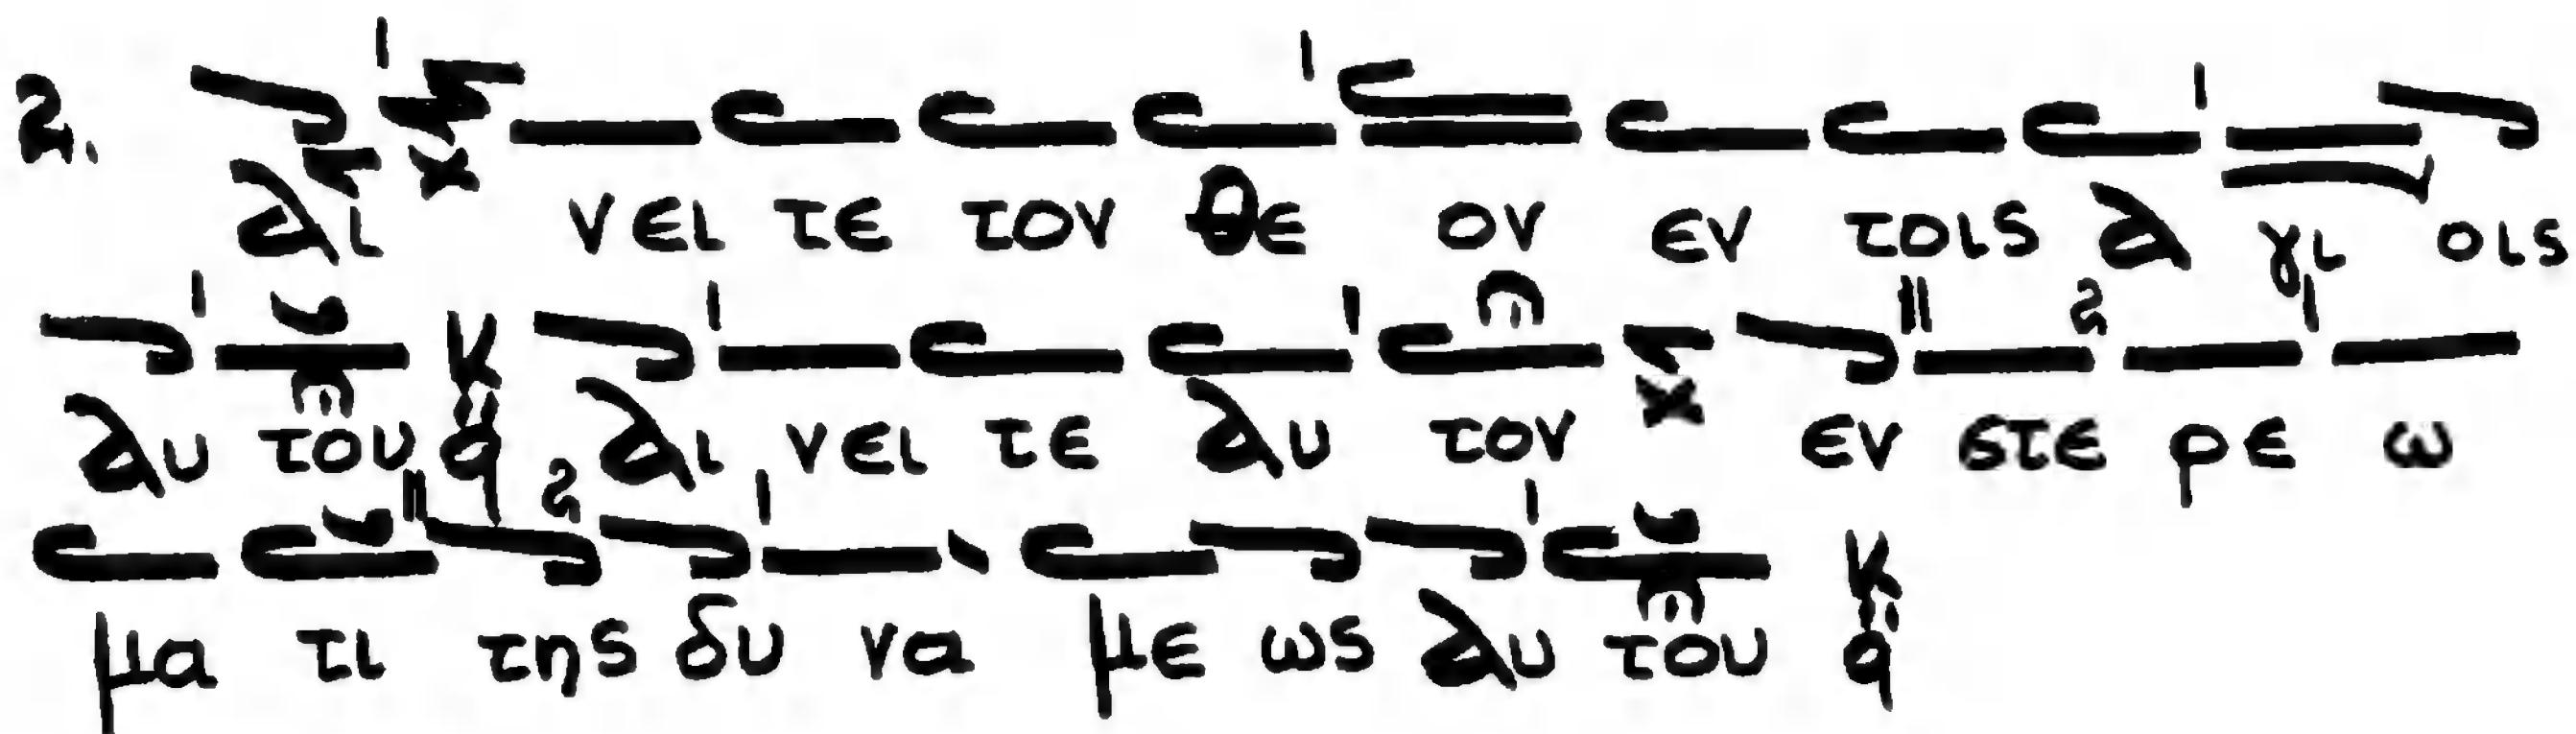 2. αι νει τε τον θε ον εν τοις α γι οις
αυ του Κ q αι νει τε αυ τον εν στε ρε ω
μα τι της δυ να με ως αυ του Κ q